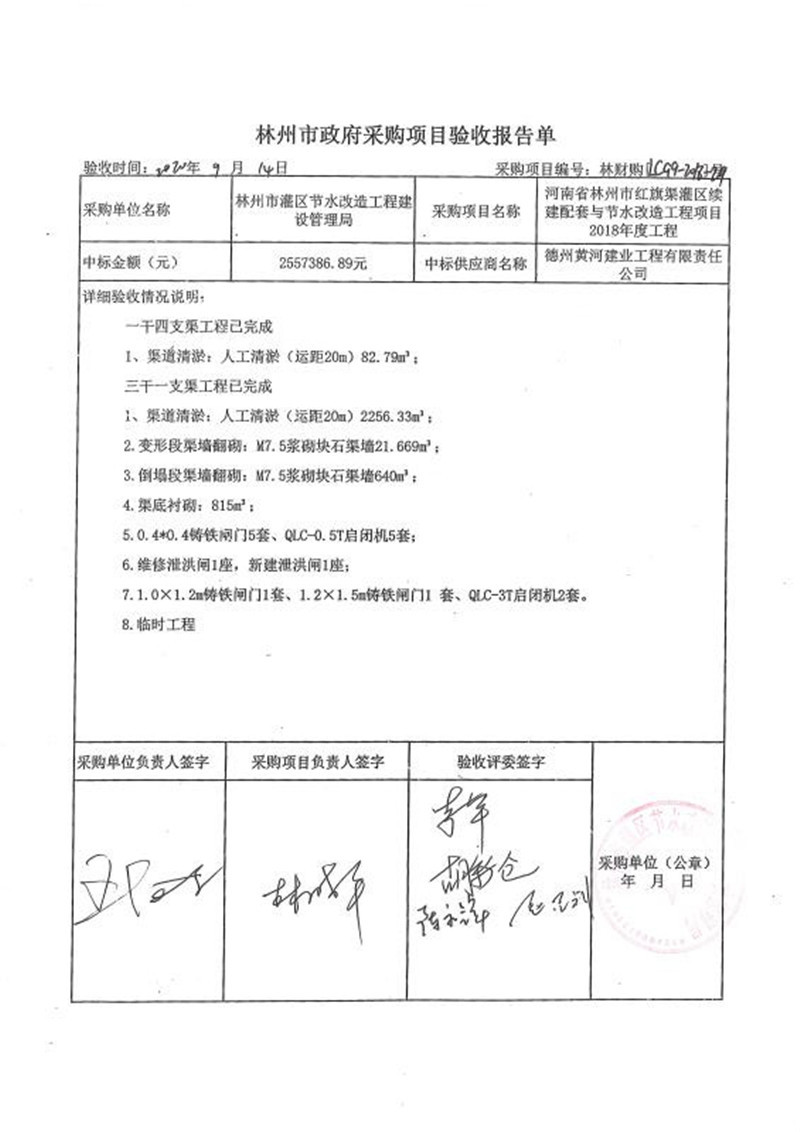 林州市政府采购项目验收报告单
验收时间：2020年 9 月 14日 采购项目编号：林财购
采购单位名称
林州市灌区节水改造工程建
设管理局
采购项目名称
河南省林州市红旗渠灌区续
建配套与节水改造工程项目
2018年度工程
中标金额（元）
2557386.89元
中标供应商名称
德州黄河建业工程有限责任
公司
详细验收情况说明：
一干四支渠工程已完成
1、渠道清淤：人工清淤（运距20m）82.79m³；
三干一支渠工程已完成
1、渠道清淤：人工清淤（运距20m）2256.33m³；
2.变形段渠墙翻砌：M7.5浆砌块石渠墙21.669m³；
3.倒塌段渠墙翻砌：M7.5浆砌块石渠墙640m³；
4.渠底衬砌：815m³；
5.0.4*0.4铸铁闸门5套、QLC-0.5T启闭机5套；
6.维修泄洪闸1座，新建泄洪闸1座；
7.1.0×1.2m铸铁闸门1套、1.2×1.5m铸铁闸门1 套、QLC-3T启闭机2套。
8.临时工程
采购单位负责人签字
采购项目负责人签字
验收评委签字
李军
采购单位（公章）
年 月 日